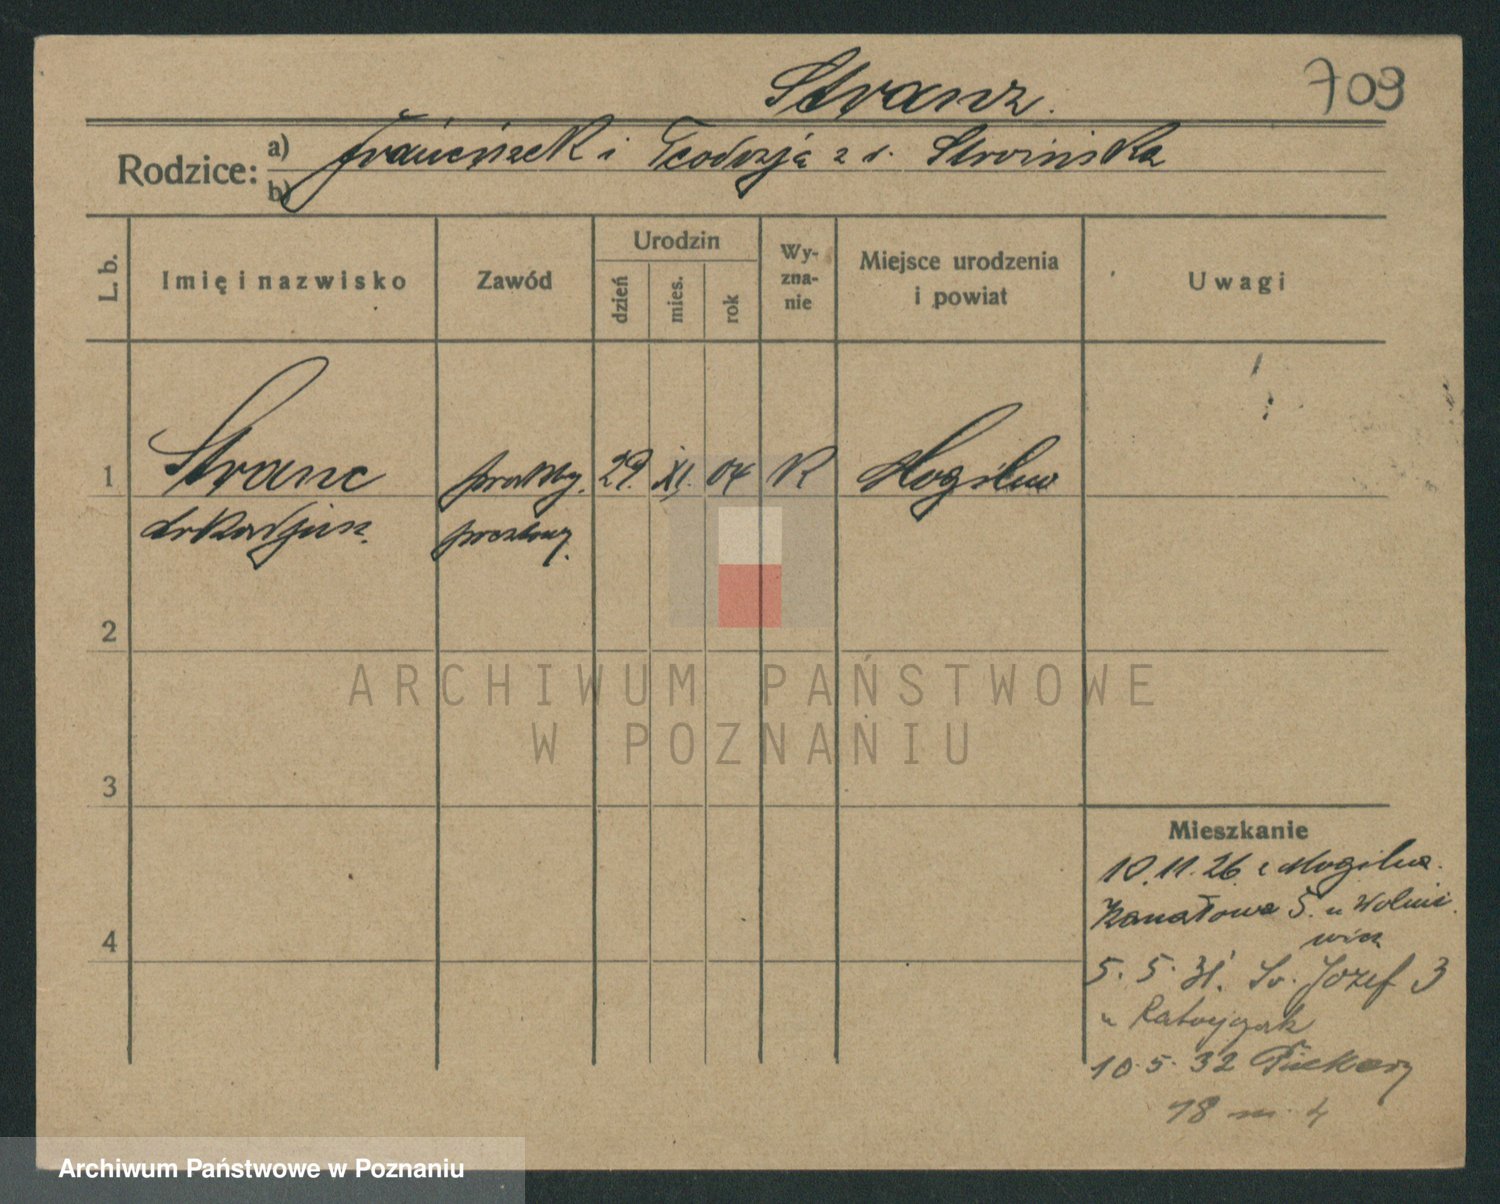 Stranz.
709
Rodzice: a) Franciszek i Teodozja z d. Stroińska
b)
L. b.
Imię i nazwisko
Zawód
Urodzin
dzień
mies.
rok
Wy-
zna-
nie
Miejsce urodzenia
i powiat
Uwagi
1 Stranc prakty. 29. XI. 04 R Mogilno
Arkadjusz. pocztowy.
2
3
4
Mieszkanie
10.11.26 z Mogilna.
Kanałowa 5. u Wolnie
wicz
5. 5. 31. Św. Józef 3
u Ratajczak
10. 5. 32 Piekary
18 m. 4
ARCHIWUM PAŃSTWOWE
W POZNANIU
Archiwum Państwowe w Poznaniu